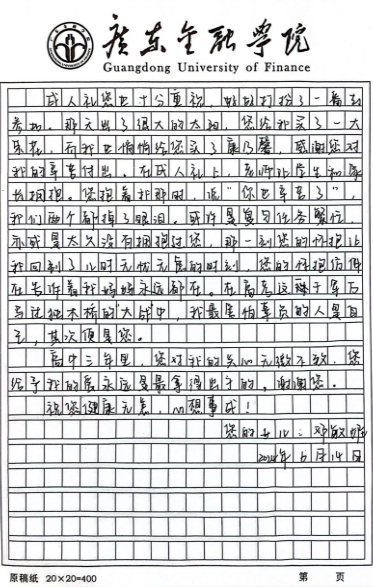 广东金融学院
Guangdong University of Finance
成人礼您也十分重视，好好打扮了一番去
参加。那天出了很大的太阳，您给我买了一大
束花，而我也悄悄给您买了康乃馨，感谢您对
我的辛苦付出。在成人礼上，老师让学生和家
长拥抱。您抱着我那时，说“你也辛苦了”，
我们两个都掉了眼泪。或许是复习任务繁忙，
亦或是太久没有拥抱过您，那一刻您的怀抱让
我回到了儿时无忧无虑的时刻，您的怀抱仿佛
在告诉着我妈妈永远都在。在高考这种千军万
马过独木桥的“大战”中，我最害怕辜负的人是自
己，其次便是您。
高中三年里，您对我的关心无微不至，您
给予我的爱永远是最拿得出手的。谢谢您。
祝您健康无恙，心想事成！
您的女儿：邓敏
2024年6月14日
原稿紙 20×20=400
第 页